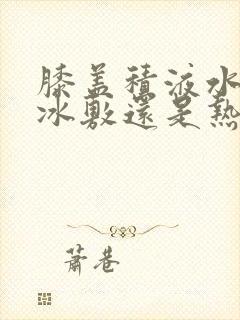 膝盖積液水
冰敷還是熱
蕭巷